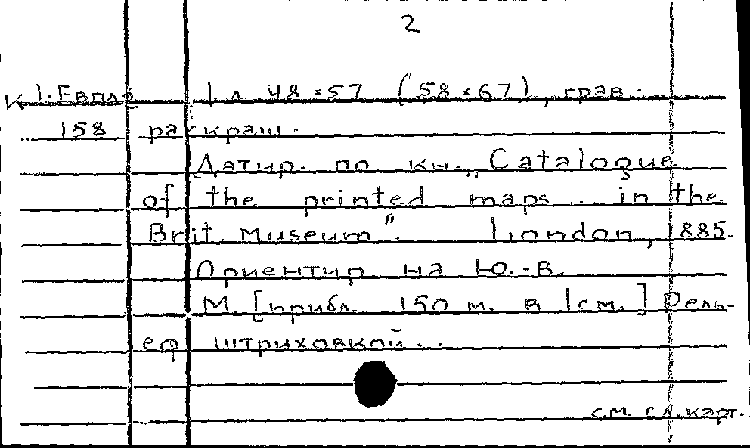 2
К 1-Европ 1 л 48×57 (58×67), грав.
158 раскраш.
Датир. по кн. „Catalogue
of the printed maps in the
Brit. Museum". London, 1885.
Ориентир. на Ю.-В.
М. [прибл. 150 м. в 1 см.] Рель-
еф штриховкой.
см. сл. карт.